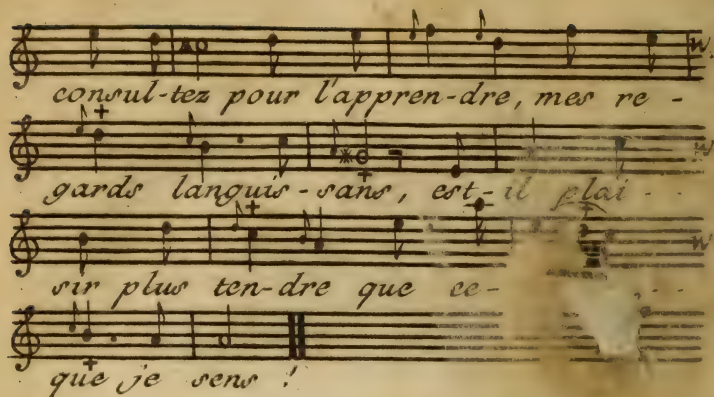 consul-tez pour l'appren-dre, mes re-
gards languis-sans, est-il plai-
sir plus ten-dre que ce-
que je sens !